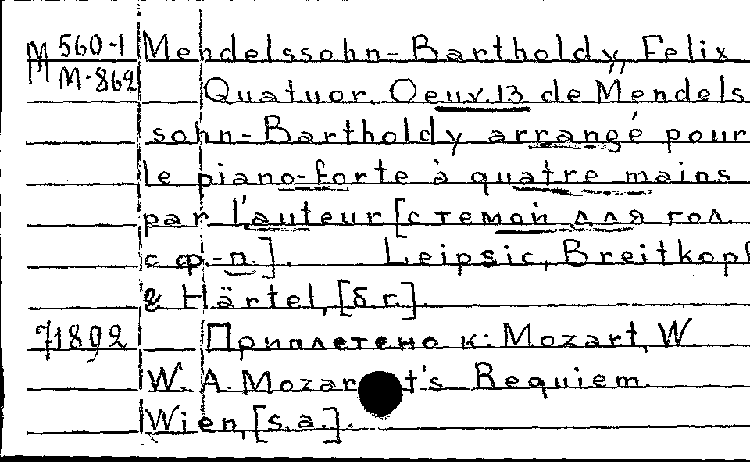 M 560-1 Mendelssohn-Bartholdy, Felix
M-862 Quatuor. Oeuv.13 de Mendels
sohn-Bartholdy arrangé pour
le piano-forte à quatre mains
par l'auteur [с темой для гол.
с ф.-п.]. Leipsic, Breitkopf
& Härtel, [б.г.].
71892 Приплетено к: Mozart, W.
W. A. Mozart's Requiem.
Wien, [s.a.].